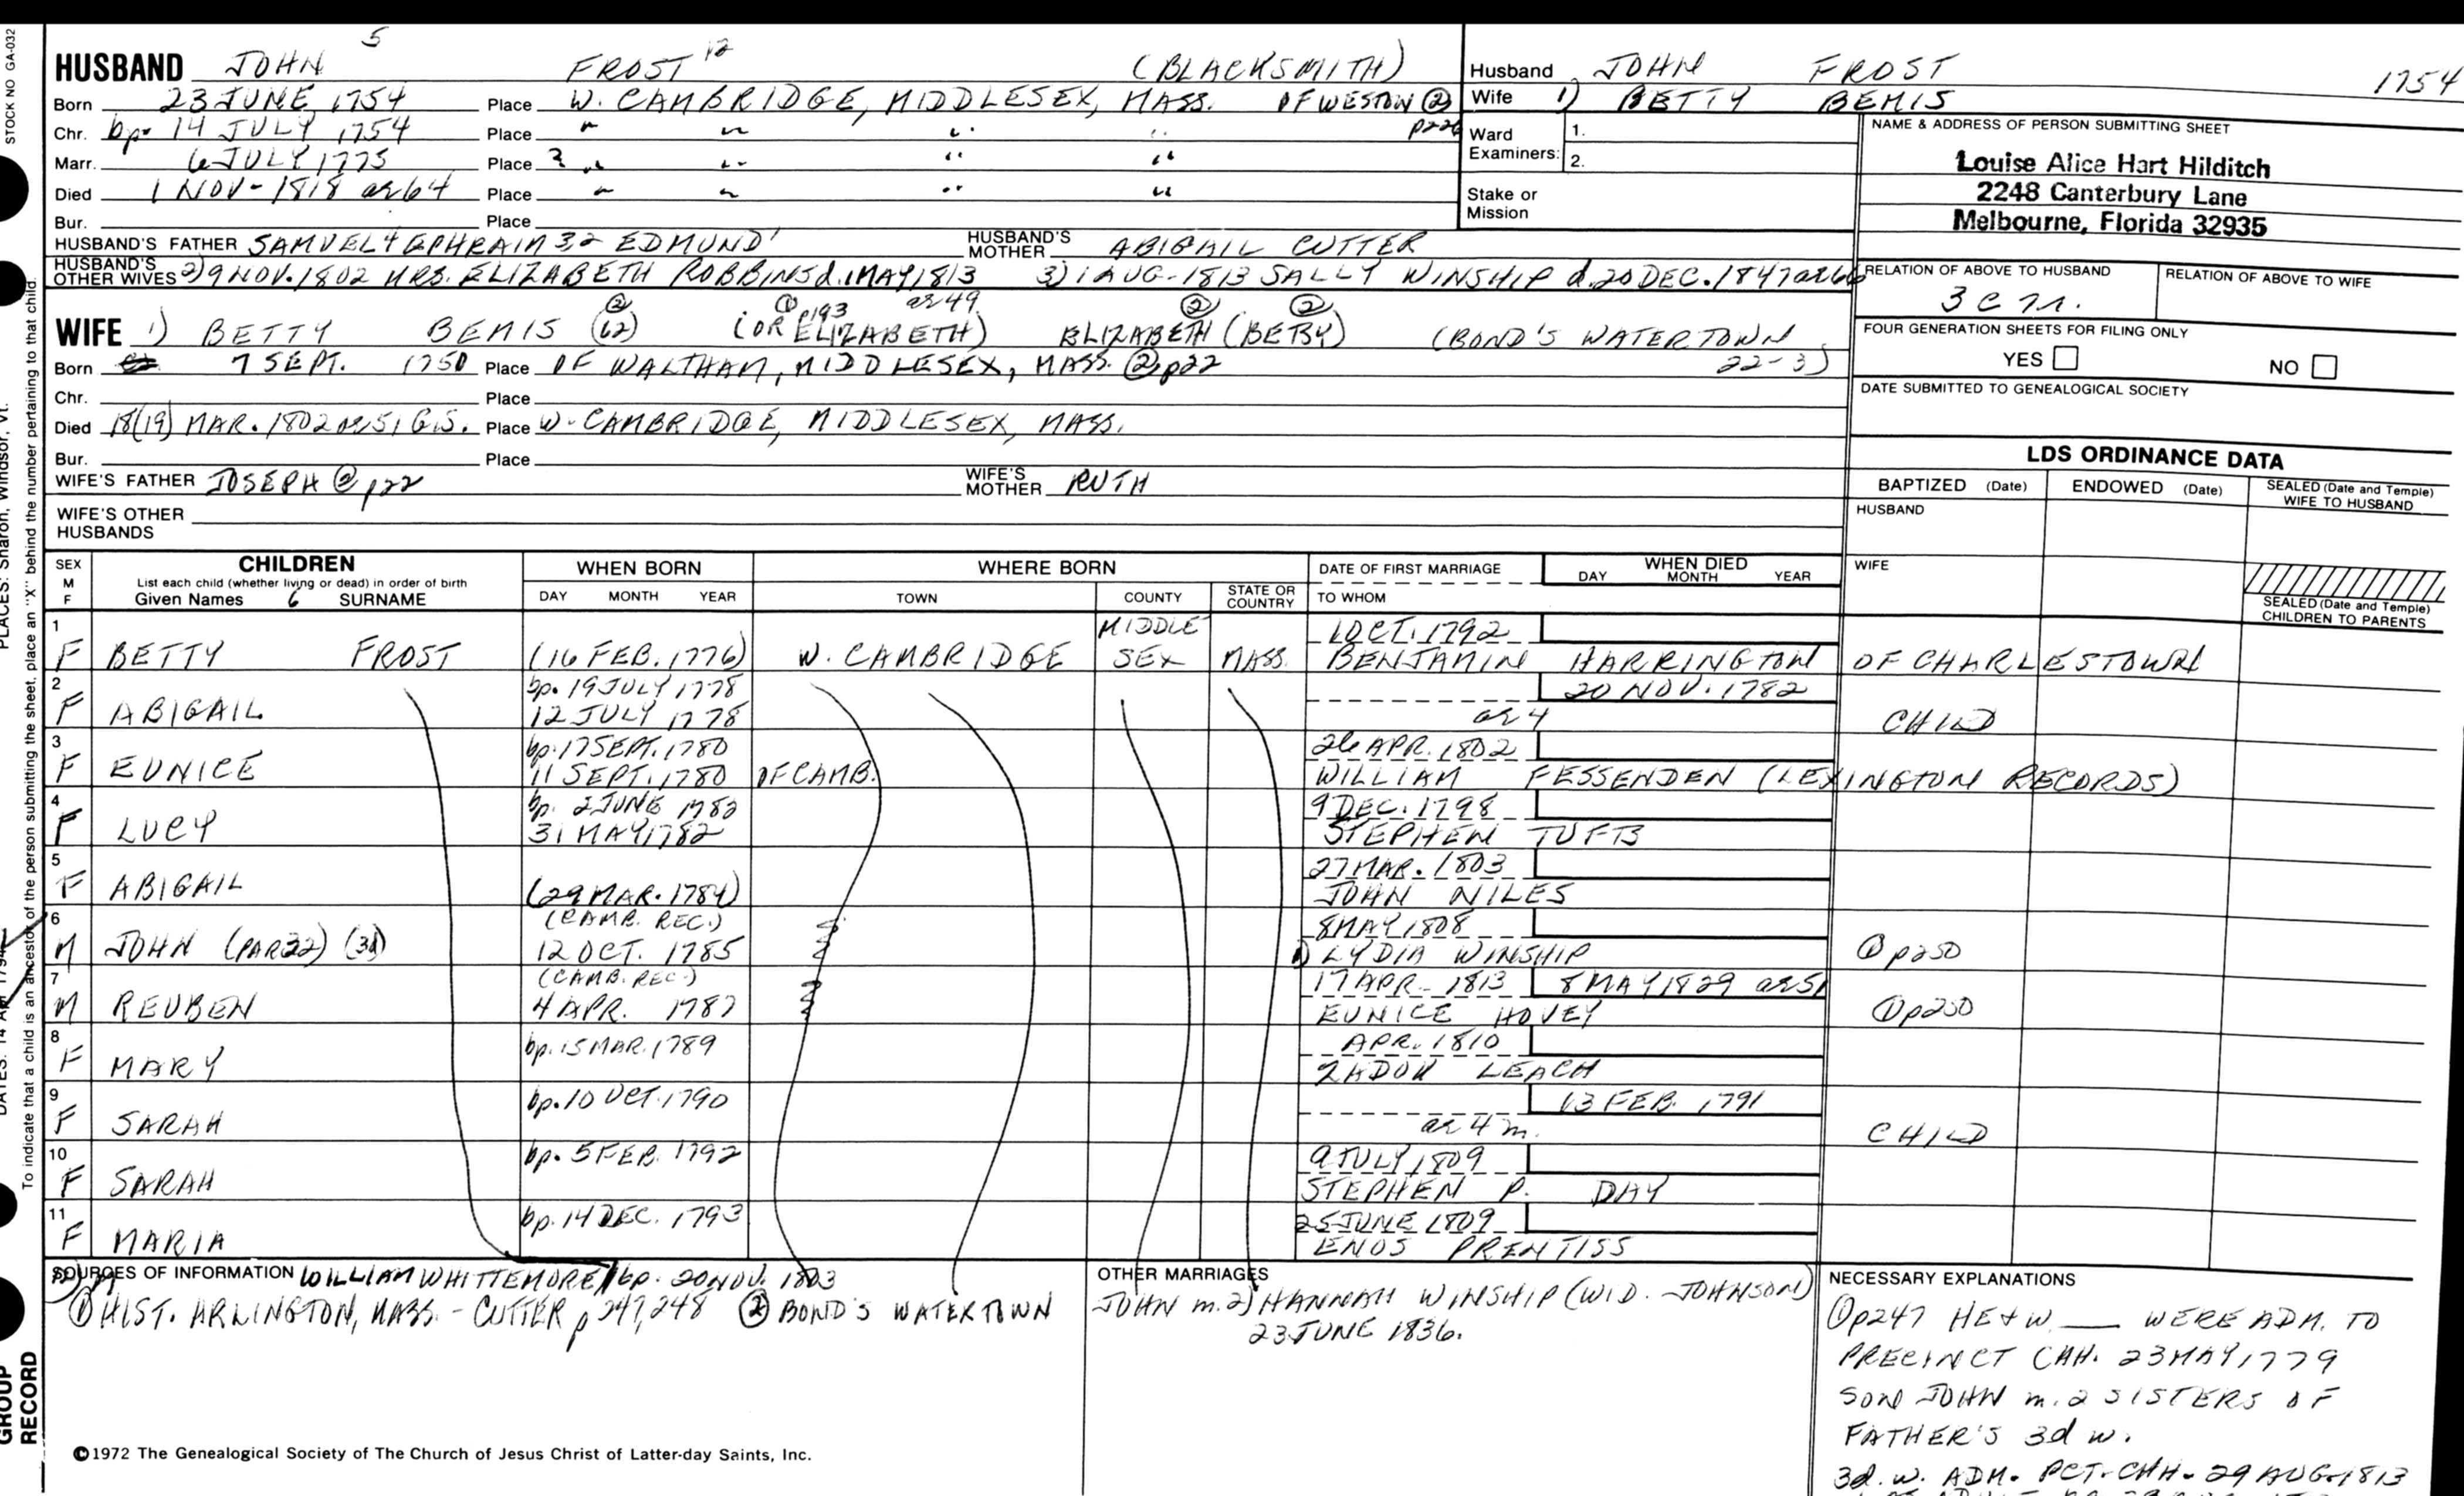 STOCK NO GA-032
HUSBAND JOHN 5 FROST 12 (BLACKSMITH)
Born 23 JUNE 1754 Place W. CAMBRIDGE, MIDDLESEX, MASS. OF WESTON ② p226
Chr. bp. 14 JULY 1754 Place " " " "
Marr. 6 JULY 1775 Place ? " " " "
Died 1 NOV- 1818 ae 64 Place " " " "
Bur. Place
HUSBAND'S FATHER SAMUEL 4 EPHRAIM 3,2 EDMUND' HUSBAND'S MOTHER ABIGAIL CUTTER
HUSBAND'S OTHER WIVES 2) 9 NOV. 1802 MRS. ELIZABETH ROBBINS d. 1 MAY 1813 ae 49. 3) 1 AUG- 1813 SALLY WINSHIP d. 20 DEC. 1847 ae 66
WIFE 1) BETTY BEMIS ② (62) (OR ELIZABETH) ① p193 ELIZABETH (BETSY) ② ② (BOND'S WATERTOWN 22-3)
Born 7 SEPT. 1750 Place OF WALTHAM, MIDDLESEX, MASS. ② p22
Chr. Place
Died 18(19) MAR. 1802 ae 51 G.S. Place W. CAMBRIDGE, MIDDLESEX, MASS.
Bur. Place
WIFE'S FATHER JOSEPH ② p22 WIFE'S MOTHER RUTH
WIFE'S OTHER HUSBANDS
Husband JOHN FROST 1754
Wife 1) BETTY BEMIS
Ward Examiners: 1.
2.
Stake or Mission
NAME & ADDRESS OF PERSON SUBMITTING SHEET
Louise Alice Hart Hilditch
2248 Canterbury Lane
Melbourne, Florida 32935
RELATION OF ABOVE TO HUSBAND RELATION OF ABOVE TO WIFE
3 C
FOUR GENERATION SHEETS FOR FILING ONLY
YES NO
DATE SUBMITTED TO GENEALOGICAL SOCIETY
LDS ORDINANCE DATA
BAPTIZED (Date) ENDOWED (Date) SEALED (Date and Temple) WIFE TO HUSBAND
HUSBAND
WIFE
SEALED (Date and Temple) CHILDREN TO PARENTS
SEX M F CHILDREN WHEN BORN WHERE BORN DATE OF FIRST MARRIAGE WHEN DIED
List each child (whether living or dead) in order of birth
Given Names 6 SURNAME DAY MONTH YEAR TOWN COUNTY STATE OR COUNTRY TO WHOM DAY MONTH YEAR
1 F BETTY FROST (16 FEB. 1776) W. CAMBRIDGE MIDDLE SEX MASS. 1 OCT. 1792
BENJAMIN HARRINGTON OF CHARLESTOWN
2 F ABIGAIL bp. 19 JULY 1778 20 NOV. 1782
12 JULY 1778 ae 4 CHILD
3 F EUNICE bp. 17 SEPT. 1780 26 APR. 1802
11 SEPT. 1780 OF CAMB. WILLIAM FESSENDEN (LEXINGTON RECORDS)
4 F LUCY bp. 2 JUNE 1782 9 DEC. 1798
31 MAY 1782 STEPHEN TUFTS
5 F ABIGAIL 27 MAR. 1803
(29 MAR. 1784) JOHN NILES
6 M JOHN (PAR 32) (3d) (CAMB. REC.) 8 MAY 1808
12 OCT. 1785 1) LYDIA WINSHIP ① p250
7 M REUBEN (CAMB. REC.) 17 APR- 1813 8 MAY 1829 ae 51
4 APR. 1787 EUNICE HOVEY ① p250
8 F MARY bp. 15 MAR. 1789 APR. 1810
ZADOK LEACH
9 F SARAH bp. 10 OCT. 1790 13 FEB. 1791
ae 4 m. CHILD
10 F SARAH bp. 5 FEB. 1792 9 JULY 1809
STEPHEN P. DAY
11 F MARIA bp. 14 DEC. 1793 25 JUNE 1809
ENOS PRENTISS
SOURCES OF INFORMATION WILLIAM WHITTEMORE bp. 20 NOV. 1803
① HIST. ARLINGTON, MASS. - CUTTER p 247, 248 ② BOND'S WATERTOWN
OTHER MARRIAGES
JOHN m. 2) HANNAH WINSHIP (WID. JOHNSON)
23 JUNE 1836.
NECESSARY EXPLANATIONS
① p247 HE + W. WERE ADM. TO
PRECINCT CHH. 23 MAY 1779
SON JOHN m. 2 SISTERS OF
FATHER'S 3d w.
3d. w. ADM. PCT. CHH. 29 AUG- 1813
©1972 The Genealogical Society of The Church of Jesus Christ of Latter-day Saints, Inc.
PLACES: Sharon, Windsor, Vt.
To indicate that a child is an ancestor of the person submitting the sheet, place an "X" behind the number pertaining to that child.
DATES: 14 Apr 1794
GROUP
RECORD